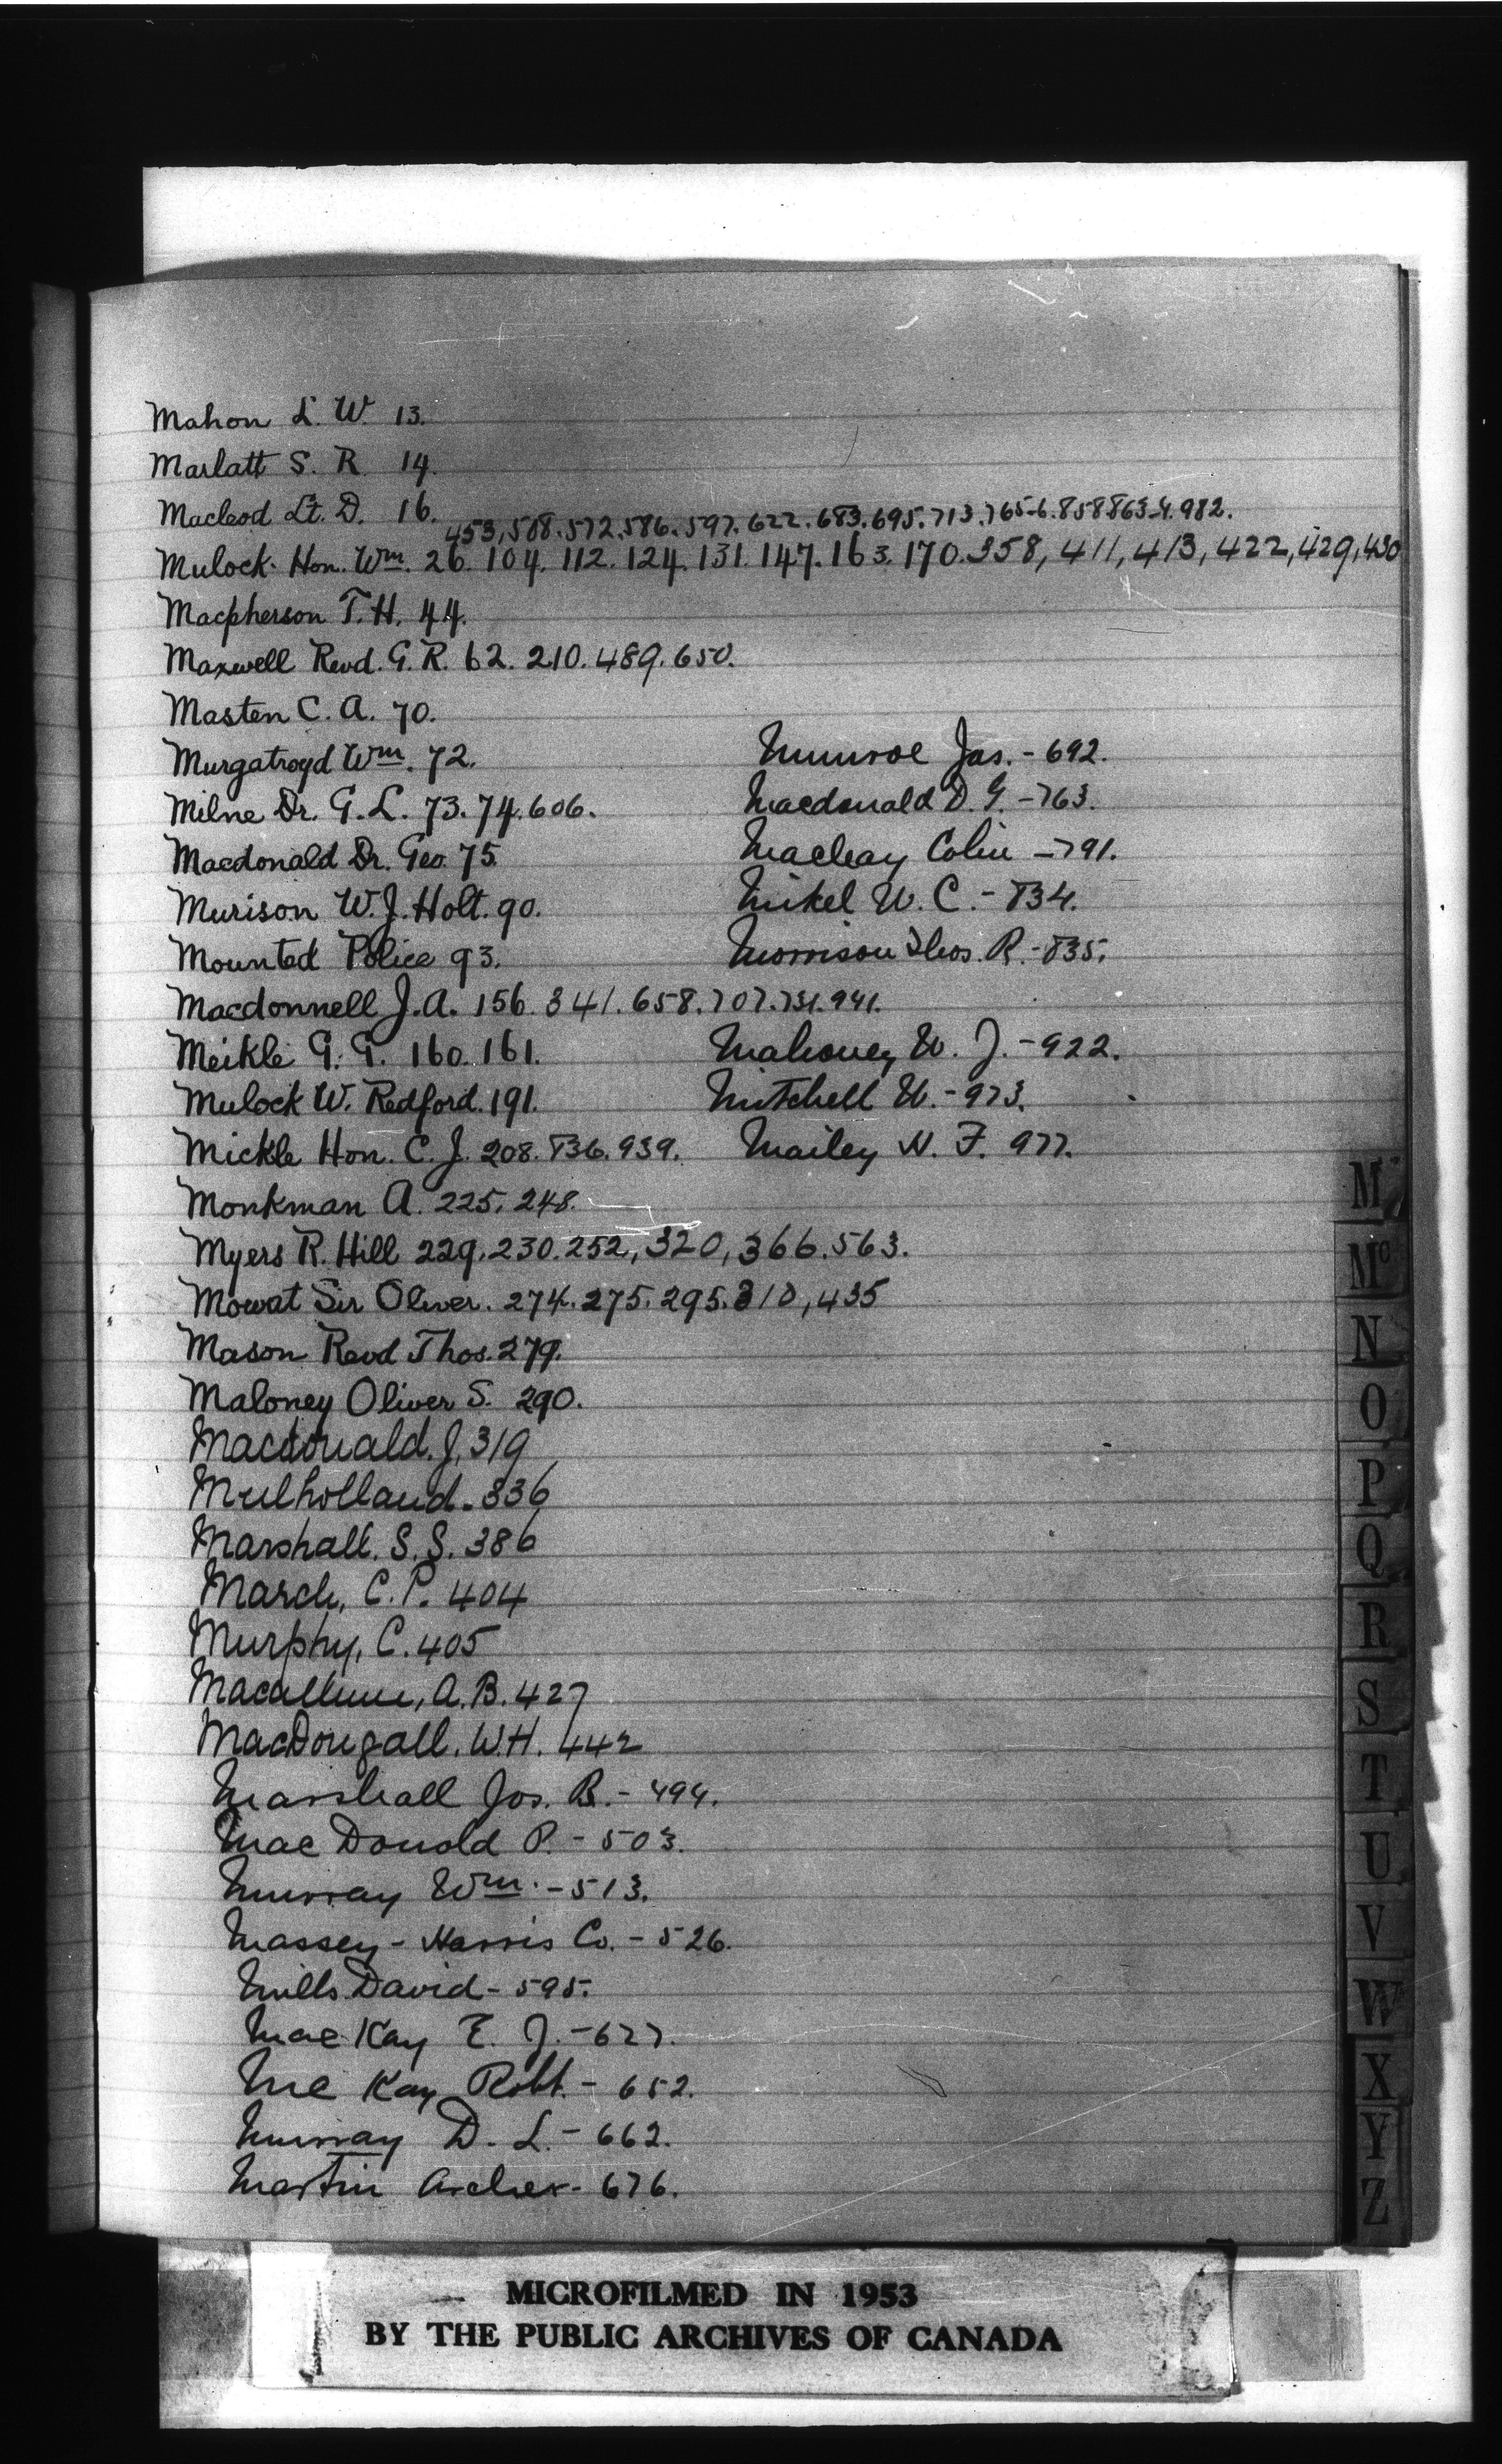 Mahon L. W. 13.
Marlatt S. R. 14.
Macleod Lt. D. 16.
453, 508. 572. 586. 597. 622. 683. 695. 713. 765-6. 858 863-4. 982.
Mulock Hon. Wm. 26. 104. 112. 124. 131. 147. 163. 170. 358, 411, 413, 422, 429, 430
Macpherson T. H. 44.
Maxwell Revd. G. R. 62. 210. 489. 650.
Masten C. A. 70.
Murgatroyd Wm. 72.
Milne Dr. G. L. 73. 74. 606.
Macdonald Dr. Geo. 75
Murison W. J. Holt. 90.
Mounted Police 93.
Macdonnell J. A. 156. 341. 658. 707. 731. 941.
Meikle G. G. 160. 161.
Mulock W. Redford. 191.
Mickle Hon. C. J. 208. 836. 939.
Monkman A. 225. 248.
Myers R. Hill 229. 230. 252, 320, 366. 563.
Mowat Sir Oliver. 274. 275. 295. 310, 435
Mason Revd Thos. 279.
Maloney Oliver S. 290.
Macdonald. J. 319
Mulholland. 336
Marshall. S. S. 386
March, C. P. 404
Murphy, C. 405
Macallum, A. B. 427
MacDougall. W. H. 442
Marshall Jos. B. - 494.
Mac Donald P. - 503.
Murray Wm. - 513.
Massey - Harris Co. - 526.
Mills David - 595.
Mac Kay E. J. - 627.
Mc Kay Robt. - 652.
Murray D. L. - 662.
Martin Archer - 676.
Munroe Jas. - 692.
Macdonald D. G. - 763.
Macleay Colin - 791.
Mikel W. C. - 834.
Morrison Thos. R. - 835.
Mahoney W. J. - 922.
Mitchell W. - 973.
Mailey H. F. 977.
M
Mc
N
O
P
Q
R
S
T
U
V
W
X
Y
Z
MICROFILMED IN 1953
BY THE PUBLIC ARCHIVES OF CANADA